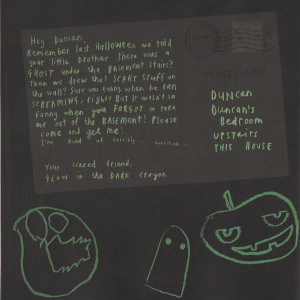 Hey Duncan,
Remember last Halloween we told
your little brother there was a
GHOST under the BASEMENT stairs?
Then we drew that SCARY stuff on
the wall? Sure was funny when he ran
SCREAMING, right? But it wasn't so
funny when you FORGOT to take
me out of the BASEMENT! Please
come and get me!
I'm kind of terribly... terrified...
Your scared friend,
Glow in the DARK crayon
POST CARD
DUNCAN
Duncan's
Bedroom
upstairs
THIS HOUSE